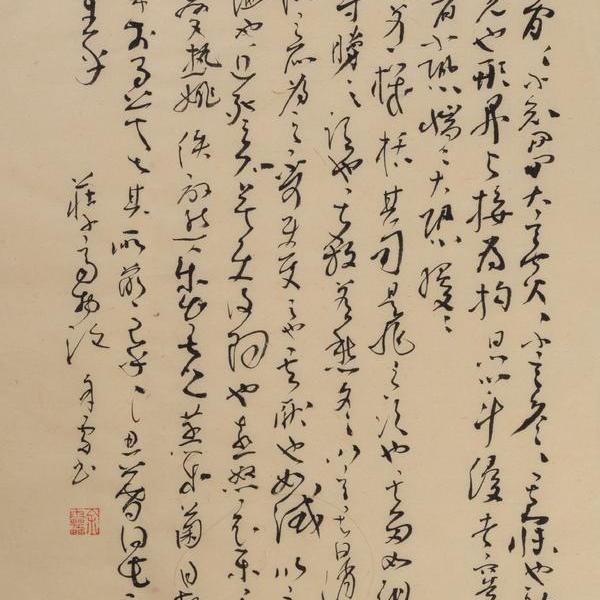 閒小知閒閒大言炎炎小言詹詹其寐也
也形開與接為構日以心鬥縵者窖
小恐惴惴大恐縵縵
若機栝其司是非之謂也其留如詛
守勝之謂也其殺若秋冬以言其日消
之所為之不可使復之也其厭也如緘以言
洫也近死之心莫使復陽也喜怒哀樂
變慹姚佚啟態樂出虛蒸成菌日夜
前而莫知其所萌已乎已乎旦暮得此
生乎
莊子齊物論 書